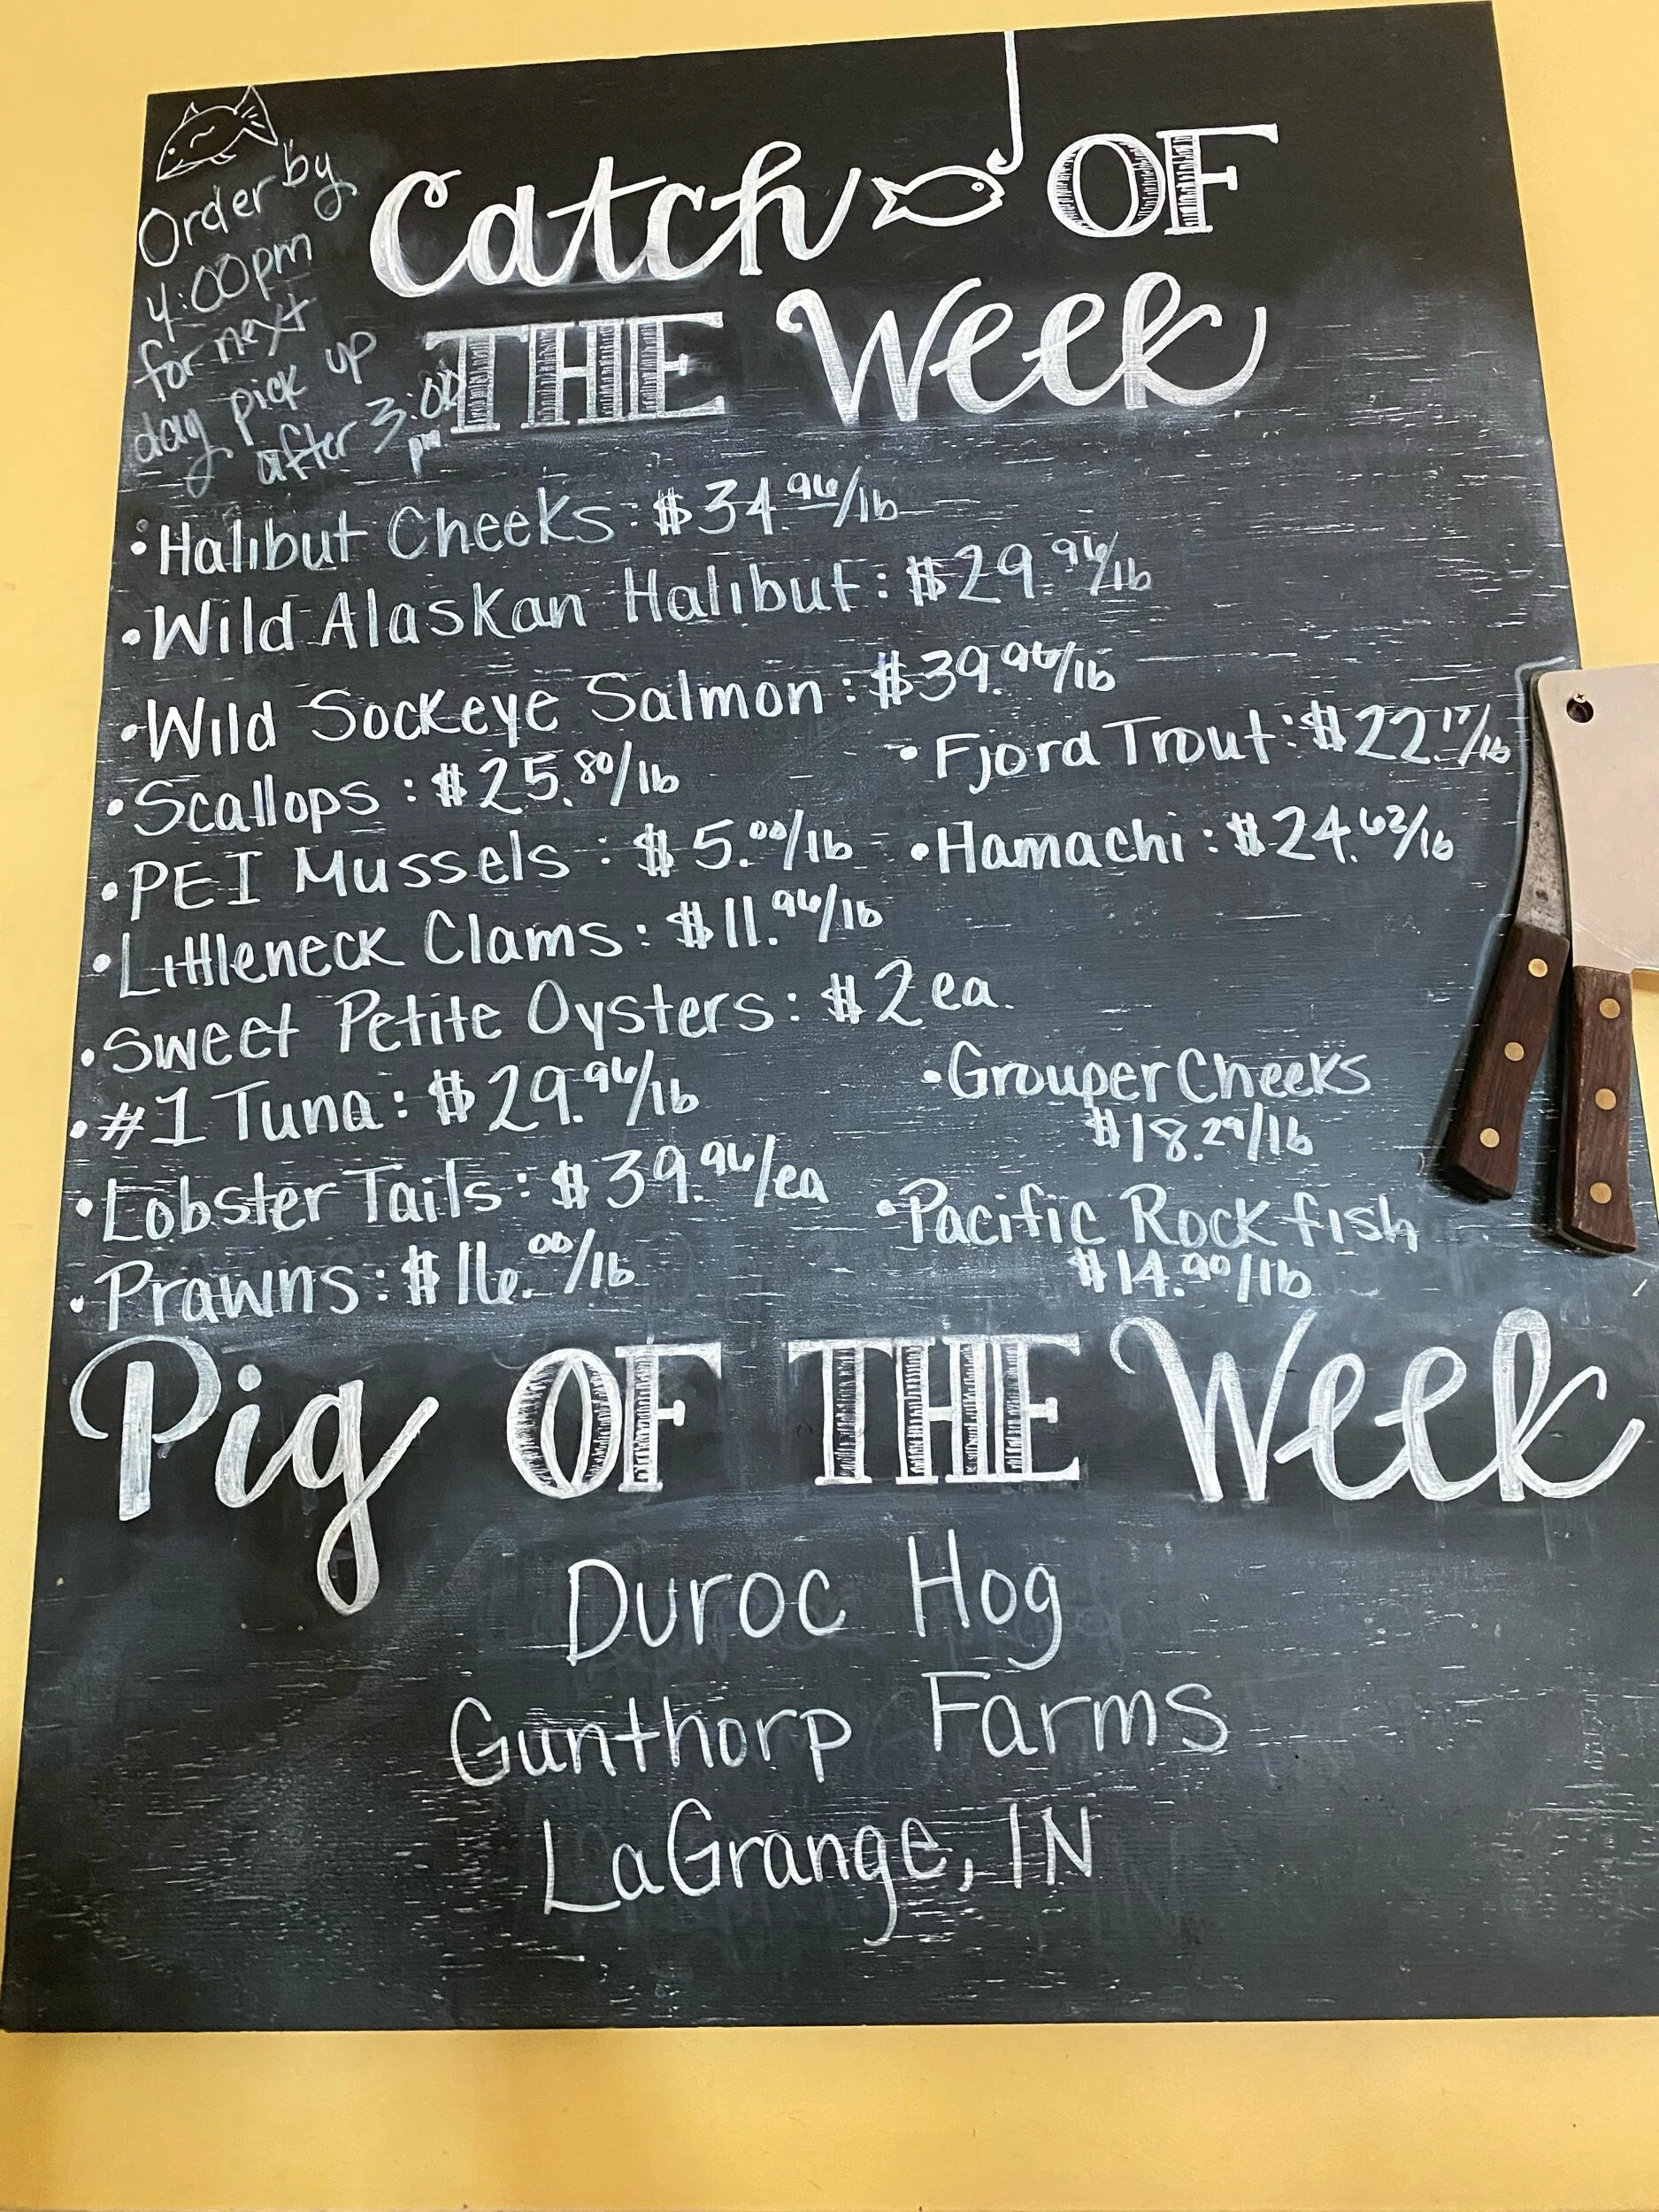 Order by
4:00pm
for next
day pick up
after 3:00
pm
Catch OF
THE Week
• Halibut Cheeks: $34.96/lb
• Wild Alaskan Halibut: $29.96/lb
• Wild Sockeye Salmon: $39.96/lb
• Scallops: $25.80/lb
• Fjord Trout: $22.17/lb
• PEI Mussels: $5.00/lb
• Hamachi: $24.62/lb
• Littleneck Clams: $11.96/lb
• Sweet Petite Oysters: $2 ea.
• #1 Tuna: $29.96/lb
• Grouper Cheeks
$18.29/lb
• Lobster Tails: $39.96/ea
• Pacific Rock fish
$14.90/lb
• Prawns: $16.00/lb
Pig OF THE Week
Duroc Hog
Gunthorp Farms
LaGrange, IN